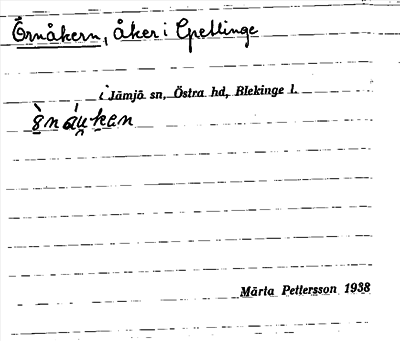 Örnåkern, åker i Gpetlinge
i Jämjö sn, Östra hd, Blekinge l.
Märta Pettersson 1938